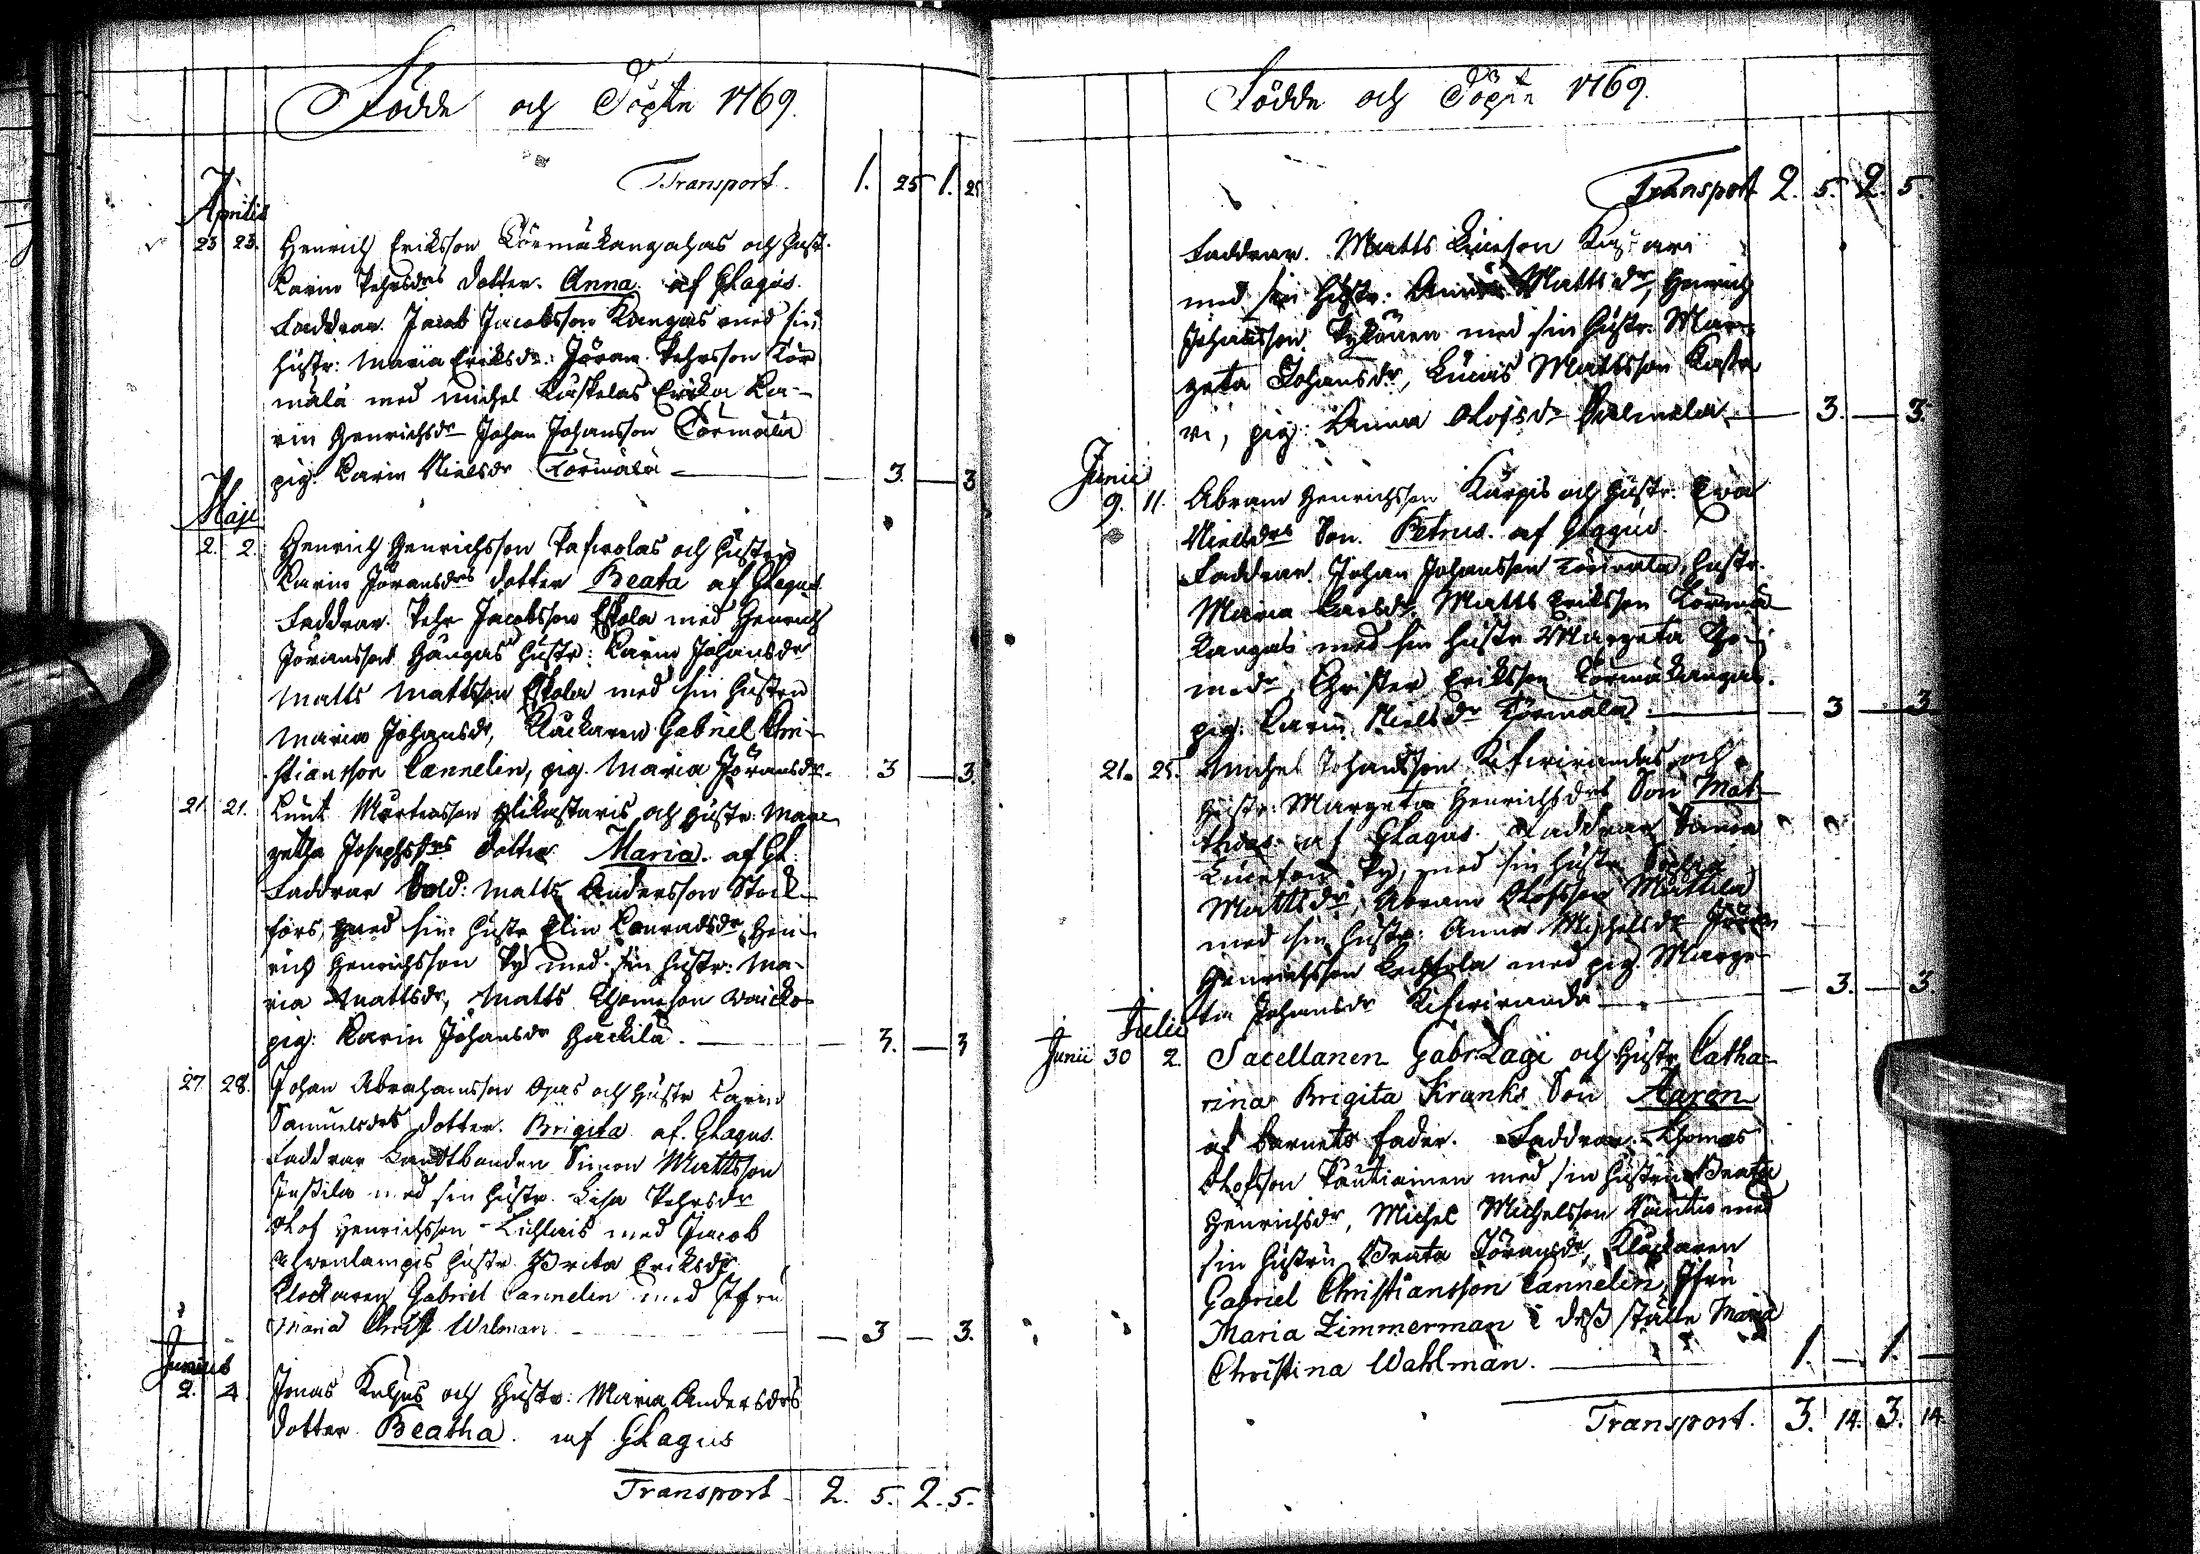 Födde och Döpte 1769.
Transport. 1. 25 1. 25
Aprilis
23 23. Henrich Eriksson Törmäkangahas och hust.
Karin Pehrsdrs dotter. Anna. af Glagus.
Faddrar. Jacob Jacobsson Kangas med sin
hustr: Maria Eriksdr. Jöran Pehrsson Tör
mälä med Michel Erika Ka-
rin Henrichsdr Johan Johansson Törmälä
pig. Karin Nielsdr Törmälä 3 3
Maji
2. 2. Henrich Henrichsson och hustru
Karin Jöransdrs dotter Beata af Glagus.
Faddrar. Pehr Jacobsson Eskola med Henrich
Jöransson Hangas hustr: Karin Johansdr
Matts Mattsson Eskola med sin hustru
Maria Johansdr, Klockaren Gabriel Chri-
stiansson Cannelin, pig. Maria Jöransdr. 3 3.
21 21. Knut Mårtensson och hustr: Mar
getha Josephsdrs dotter Maria. af Gl:
Faddrar Sold: Matts Andersson Stock-
fors, med sin hustr Elin Conradsdr, Hen-
rich Henrichsson Py med sin hustr: Ma-
ria Mattsdr, Matts Thomeson
pig: Karin Johansdr Hackila. 3. 3
27 28. Johan Abrahamsson Ojas och hustr Karin
Samuelsdrs dotter. Brigita af. Glagus.
Faddrar Landtbonden Simon Mattsson
med sin hustr. Lisa Pehrsdr
Olof Henrichsson med Jacob
hustr Brita Eriksdr
Klockaren Gabriel Cannelin med Jfru
Maria Christ. Walman 3 3.
Junius
2. 4. Jonas och hustr: Maria Andersdrs
dotter Beatha. af Glagus
Transport 2. 5. 2. 5.
Födde och Döpte 1769.
Transport 2. 5. 2. 5.
Faddrar. Matts
med sin hustr. Anna Mattsdr, Henrich
Johansson Pykönen med sin hustr: Mar-
geta Johansdr, Mattsson
ri, pig: Anna Olofsdr 3. 3.
Junii
9. 11. Abram Henrichsson Karpis och hustr: Ewa
Nielsdrs Son. Petrus. af Glagus.
Faddrar. Johan Johansson Törmälä, hustr.
Maria Larsdr, Matts Eriksson Törmä
kangas med sin hustr Margeta
Christer Eriksson Törmäkangas.
pig. Karin Nielsdr Törmälä. 3 3
21. 25. Michel Johansson och
hustr: Margeta Henrichsdrs Son Mat
thias. af Glagus. Faddrar
Py, med sin hustr
Mattsdr, Abram Olofsson Mattila
med sin hustr: Anna Michelsdr Jöran
Henrichsson med pig. Marge
ta Johansdr 3. 3.
Julii
Junii 30 2. Sacellanen Gabr. Lagi och hustr Catha-
rina Brigita Kranks Son Aaron
af barnets fader. Faddrar. Thomas
Olofsson Pautiainen med sin hustru Beata
Henrichsdr, Michel Michelsson med
sin hustru Beata Jöransdr, Klockaren
Gabriel Christiansson Cannelin, Jfru
Maria Zimmerman i dess ställe Maria
Christina Wahlman. 1. 1.
Transport. 3. 14. 3. 14.